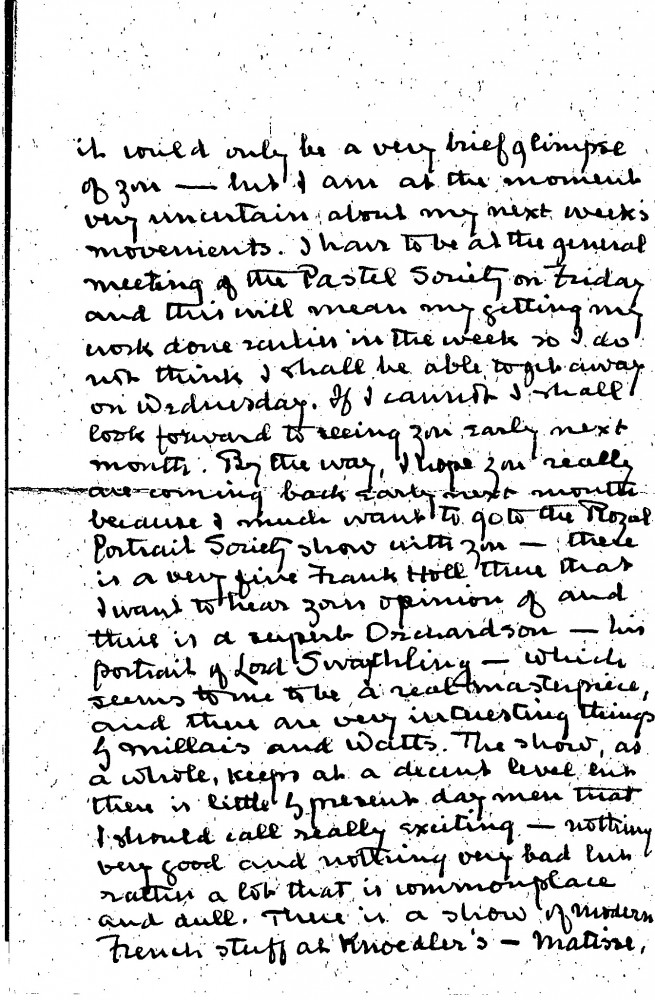 it would only be a very brief glimpse
of you — but I am at the moment
very uncertain about my next week's
movements. I have to be at the general
meeting of the Pastel Society on Friday
and this will mean my getting my
work done earlier in the week so I do
not think I shall be able to get away
on Wednesday. If I cannot I shall
look forward to seeing you early next
month. By the way, I hope you really
are coming back early next month
because I much want to go to the Royal
Portrait Society show with you — there
is a very fine Frank Holl there that
I want to hear your opinion of and
there is a superb Orchardson — his
portrait of Lord Swaythling — which
seems to me to be a real masterpiece,
and there are very interesting things
by Millais and Watts. The show, as
a whole, keeps at a decent level but
there is little by present day men that
I should call really exciting — nothing
very good and nothing very bad but
rather a lot that is commonplace
and dull. There is a show of modern
French stuff at Knoedler's — Matisse,